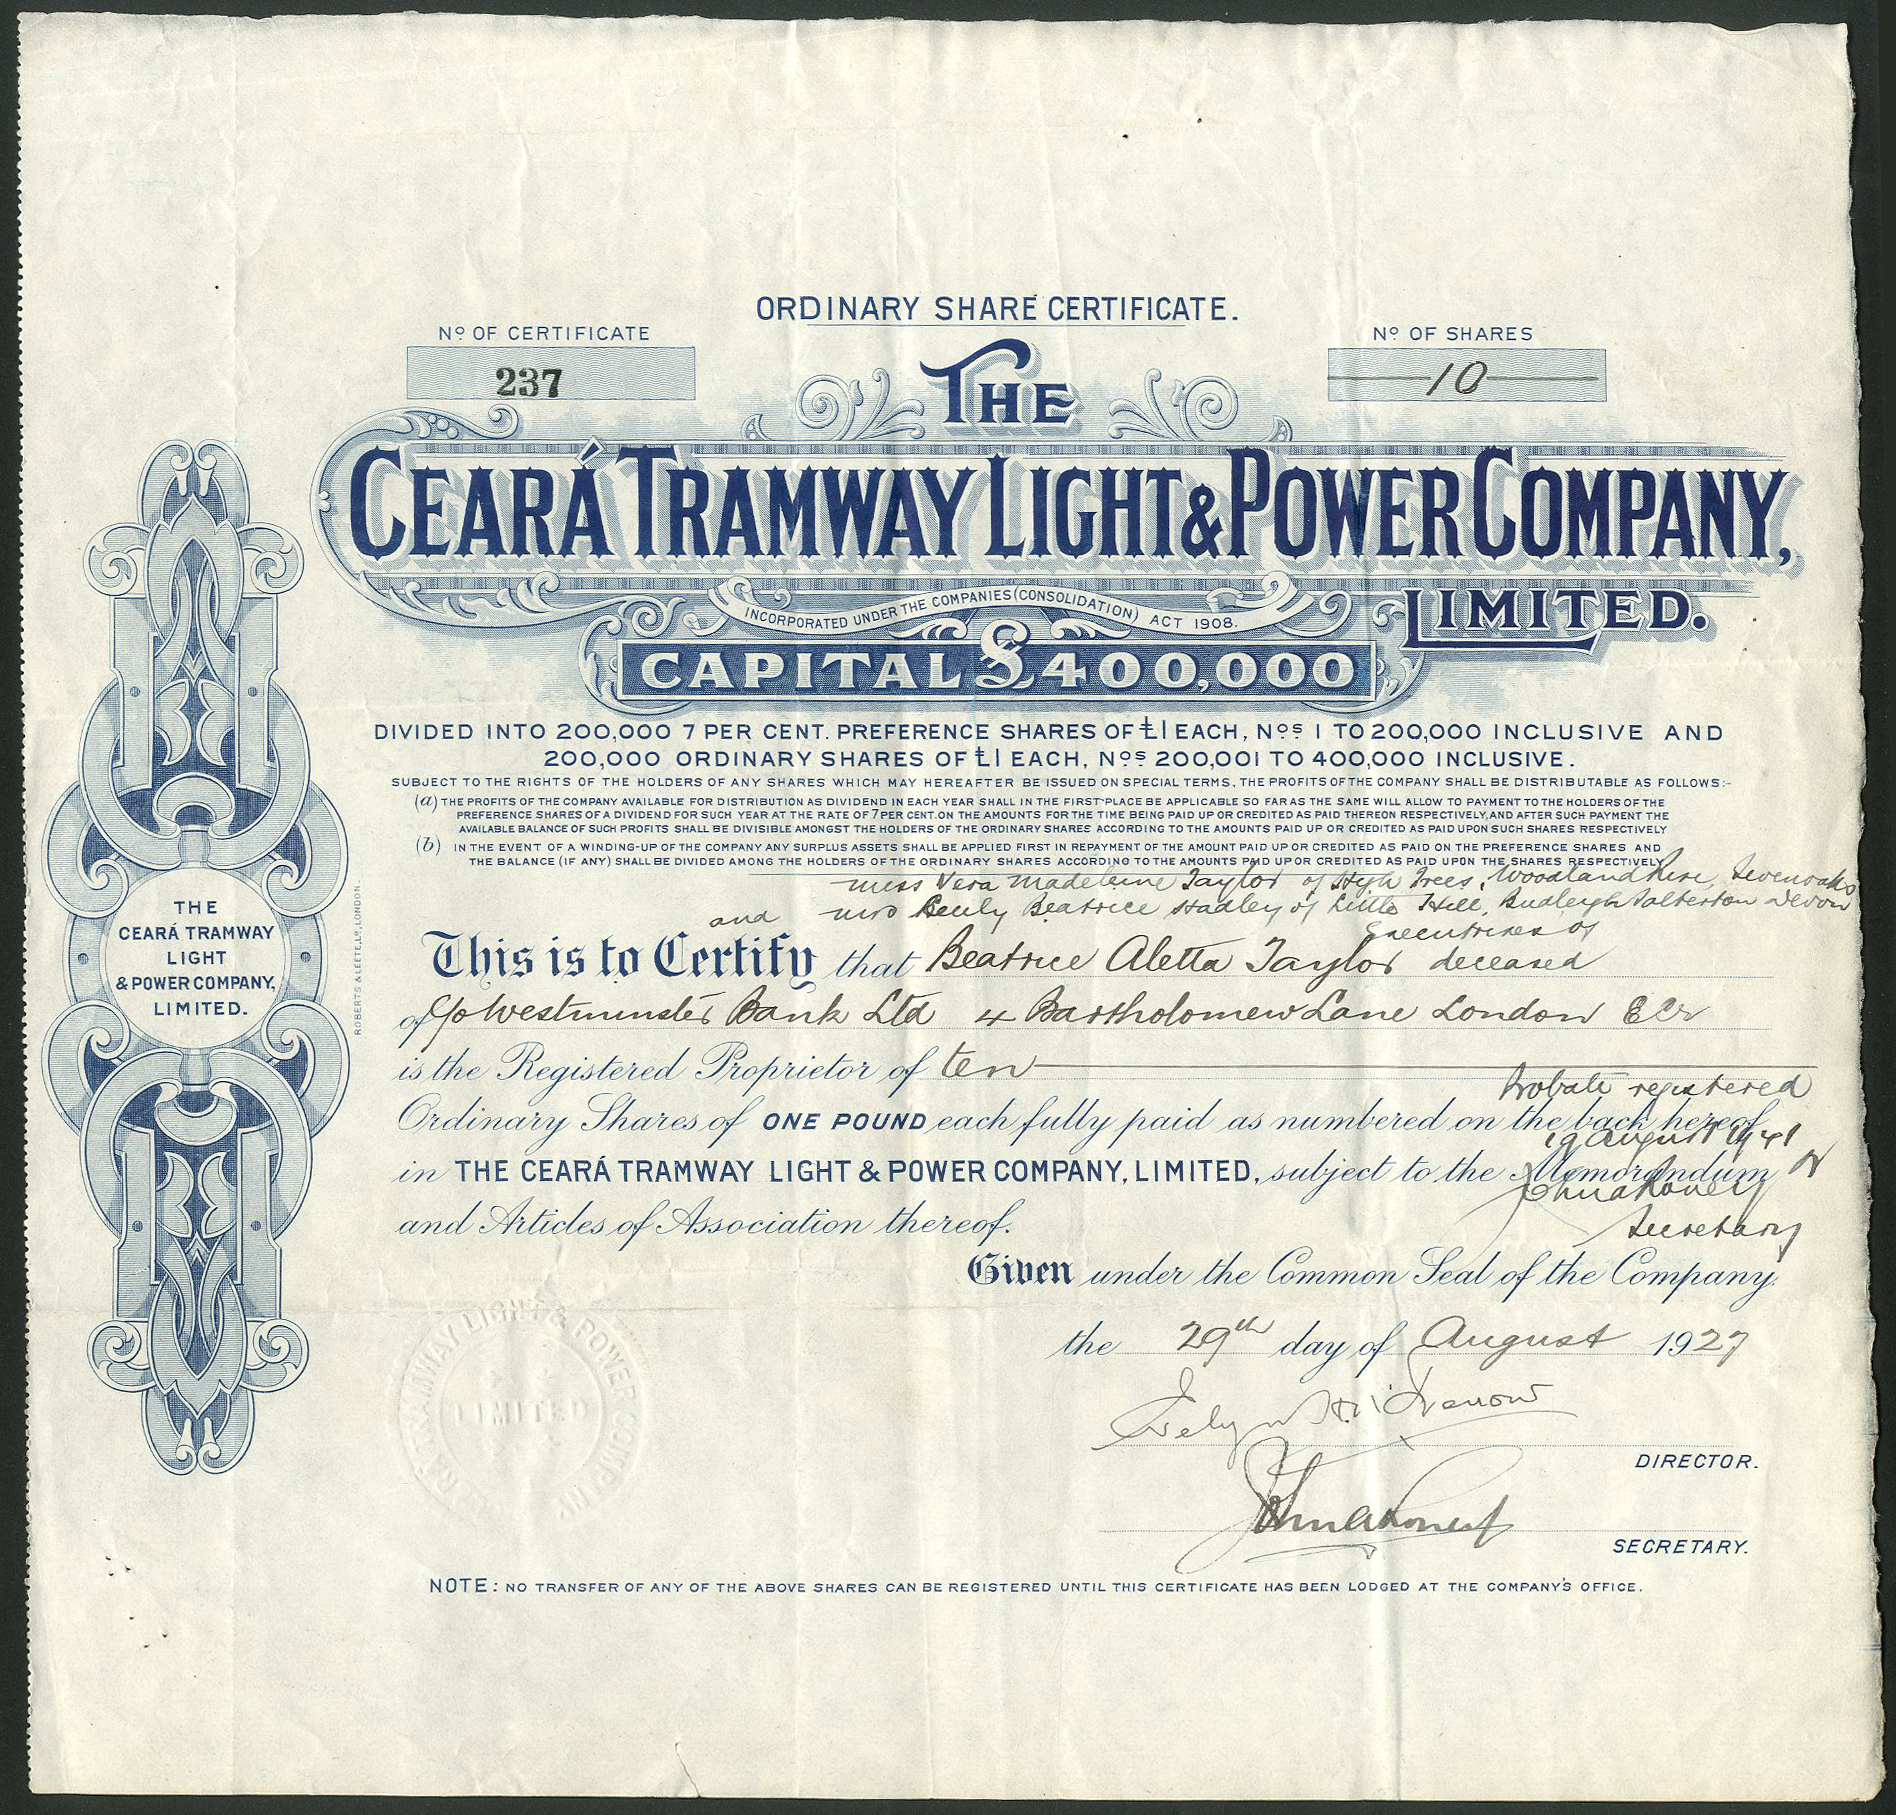 ORDINARY SHARE CERTIFICATE.
Nº OF CERTIFICATE
237
Nº OF SHARES
10
THE
CEARÁ TRAMWAY LIGHT & POWER COMPANY,
LIMITED.
INCORPORATED UNDER THE COMPANIES (CONSOLIDATION) ACT 1908.
CAPITAL £400,000
DIVIDED INTO 200,000 7 PER CENT. PREFERENCE SHARES OF £1 EACH, Nos 1 TO 200,000 INCLUSIVE AND
200,000 ORDINARY SHARES OF £1 EACH, Nos 200,001 TO 400,000 INCLUSIVE.
SUBJECT TO THE RIGHTS OF THE HOLDERS OF ANY SHARES WHICH MAY HEREAFTER BE ISSUED ON SPECIAL TERMS, THE PROFITS OF THE COMPANY SHALL BE DISTRIBUTABLE AS FOLLOWS:-
(a) THE PROFITS OF THE COMPANY AVAILABLE FOR DISTRIBUTION AS DIVIDEND IN EACH YEAR SHALL IN THE FIRST PLACE BE APPLICABLE SO FAR AS THE SAME WILL ALLOW TO PAYMENT TO THE HOLDERS OF THE
PREFERENCE SHARES OF A DIVIDEND FOR SUCH YEAR AT THE RATE OF 7 PER CENT. ON THE AMOUNTS FOR THE TIME BEING PAID UP OR CREDITED AS PAID THEREON RESPECTIVELY, AND AFTER SUCH PAYMENT THE
AVAILABLE BALANCE OF SUCH PROFITS SHALL BE DIVISIBLE AMONGST THE HOLDERS OF THE ORDINARY SHARES ACCORDING TO THE AMOUNTS PAID UP OR CREDITED AS PAID UPON SUCH SHARES RESPECTIVELY
(b) IN THE EVENT OF A WINDING-UP OF THE COMPANY ANY SURPLUS ASSETS SHALL BE APPLIED FIRST IN REPAYMENT OF THE AMOUNT PAID UP OR CREDITED AS PAID ON THE PREFERENCE SHARES AND
THE BALANCE (IF ANY) SHALL BE DIVIDED AMONG THE HOLDERS OF THE ORDINARY SHARES ACCORDING TO THE AMOUNTS PAID UP OR CREDITED AS PAID UPON THE SHARES RESPECTIVELY
Miss Vera Madeleine Taylor of High Trees, Woodland Rise, Sevenoaks
and Mrs Beatrice Hadley of Little Hill, Budleigh Salterton Devon
Executrixes of
This is to Certify that Beatrice Aletta Taylor deceased
of c/o Westminster Bank Ltd 4 Bartholomew Lane London
is the Registered Proprietor of ten
Probate registered
Ordinary Shares of ONE POUND each fully paid as numbered on the back hereof
19 August 1941
in THE CEARÁ TRAMWAY LIGHT & POWER COMPANY, LIMITED, subject to the Memorandum
and Articles of Association thereof.
Secretary
Given under the Common Seal of the Company,
the 29th day of August 1927
DIRECTOR.
SECRETARY.
NOTE: NO TRANSFER OF ANY OF THE ABOVE SHARES CAN BE REGISTERED UNTIL THIS CERTIFICATE HAS BEEN LODGED AT THE COMPANY'S OFFICE.
THE
CEARÁ TRAMWAY
LIGHT
& POWER COMPANY,
LIMITED.
ROBERTS & LEETE, LD, LONDON.
TRAMWAY LIGHT & POWER COMPANY
LIMITED